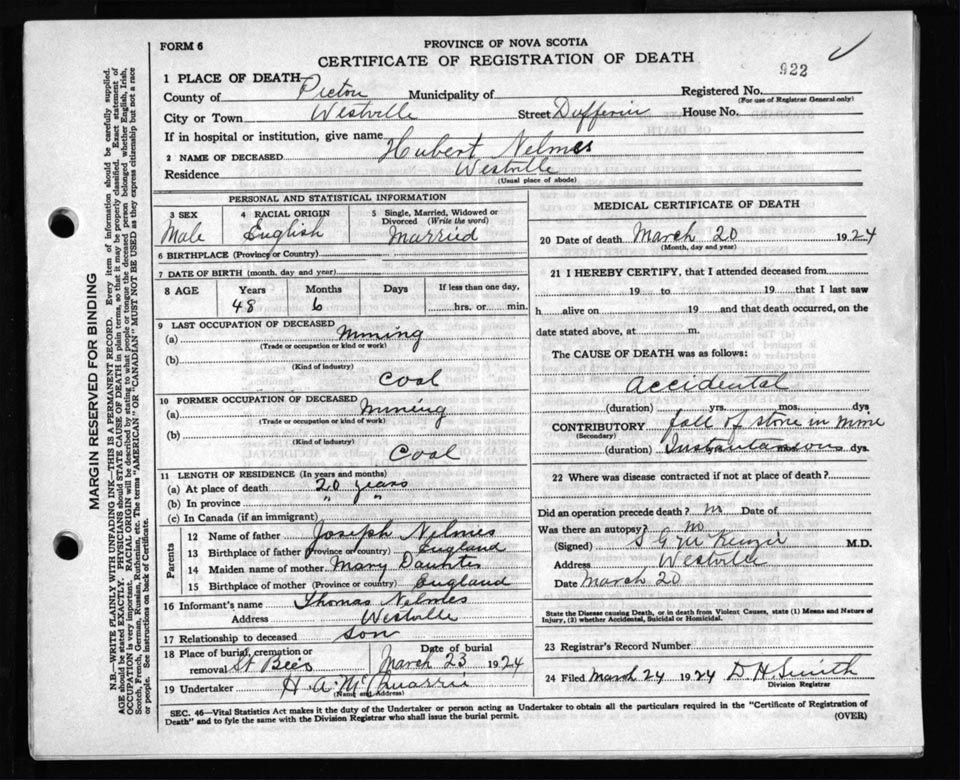 FORM 6
PROVINCE OF NOVA SCOTIA
CERTIFICATE OF REGISTRATION OF DEATH
922
1 PLACE OF DEATH
County of Pictou Municipality of Registered No.
(For use of Registrar General only)
City or Town Westville Street Dufferin House No.
If in hospital or institution, give name
2 NAME OF DECEASED Hubert Nelmes
Residence Westville
(Usual place of abode)
PERSONAL AND STATISTICAL INFORMATION
3 SEX 4 RACIAL ORIGIN 5 Single, Married, Widowed or Divorced (Write the word)
Male English Married
6 BIRTHPLACE (Province or Country)
7 DATE OF BIRTH (month, day and year)
8 AGE Years Months Days If less than one day,
48 6 hrs. or min.
9 LAST OCCUPATION OF DECEASED
(a) Mining
(Trade or occupation or kind of work)
(b)
(Kind of industry)
Coal
10 FORMER OCCUPATION OF DECEASED
(a) Mining
(b)
(Kind of industry)
Coal
11 LENGTH OF RESIDENCE (In years and months)
(a) At place of death 20 years
(b) In province " "
(c) In Canada (if an immigrant)
Parents
12 Name of father Joseph Nelmes
13 Birthplace of father (Province or country) England
14 Maiden name of mother Mary
15 Birthplace of mother (Province or country) England
16 Informant's name Thomas Nelmes
Address Westville
17 Relationship to deceased son
18 Place of burial, cremation or removal St Bees
Date of burial
March 23 1924
19 Undertaker H. A. McQuarrie
(Name and Address)
MEDICAL CERTIFICATE OF DEATH
20 Date of death March 20 1924
(Month, day and year)
21 I HEREBY CERTIFY, that I attended deceased from
19 to 19 that I last saw
h alive on 19 and that death occurred, on the
date stated above, at m.
The CAUSE OF DEATH was as follows:
Accidental
(duration) yrs. mos. dys
CONTRIBUTORY fall of stone in mine
(Secondary)
(duration) Instantaneous yrs. mos. dys.
22 Where was disease contracted if not at place of death?
Did an operation precede death? no Date of
Was there an autopsy? no
(Signed) S G McKenzie M.D.
Address Westville
Date March 20
State the Disease causing Death, or in death from Violent Causes, state (1) Means and Nature of
Injury, (2) whether Accidental, Suicidal or Homicidal.
23 Registrar's Record Number
24 Filed March 24 1924 D H Smith
Division Registrar
SEC. 46—Vital Statistics Act makes it the duty of the Undertaker or person acting as Undertaker to obtain all the particulars required in the "Certificate of Registration of
Death" and to fyle the same with the Division Registrar who shall issue the burial permit.
(OVER)
MARGIN RESERVED FOR BINDING
N.B.—WRITE PLAINLY WITH UNFADING INK—THIS IS A PERMANENT RECORD. Every item of information should be carefully supplied.
AGE should be stated EXACTLY. PHYSICIANS should STATE CAUSE OF DEATH in plain terms, so that it may be properly classified. Exact statement of
OCCUPATION is very important. RACIAL ORIGIN will be described by stating to what people or tongue the deceased person belonged whether English, Irish,
Scotch, French, German, Russian, Ruthenian, etc. The terms "AMERICAN" OR "CANADIAN" MUST NOT BE USED as they express citizenship but not a race
or people. See instructions on back of Certificate.